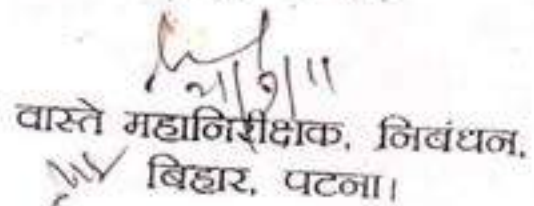 वास्ते महानिरीक्षक, निबंधन,
बिहार, पटना।